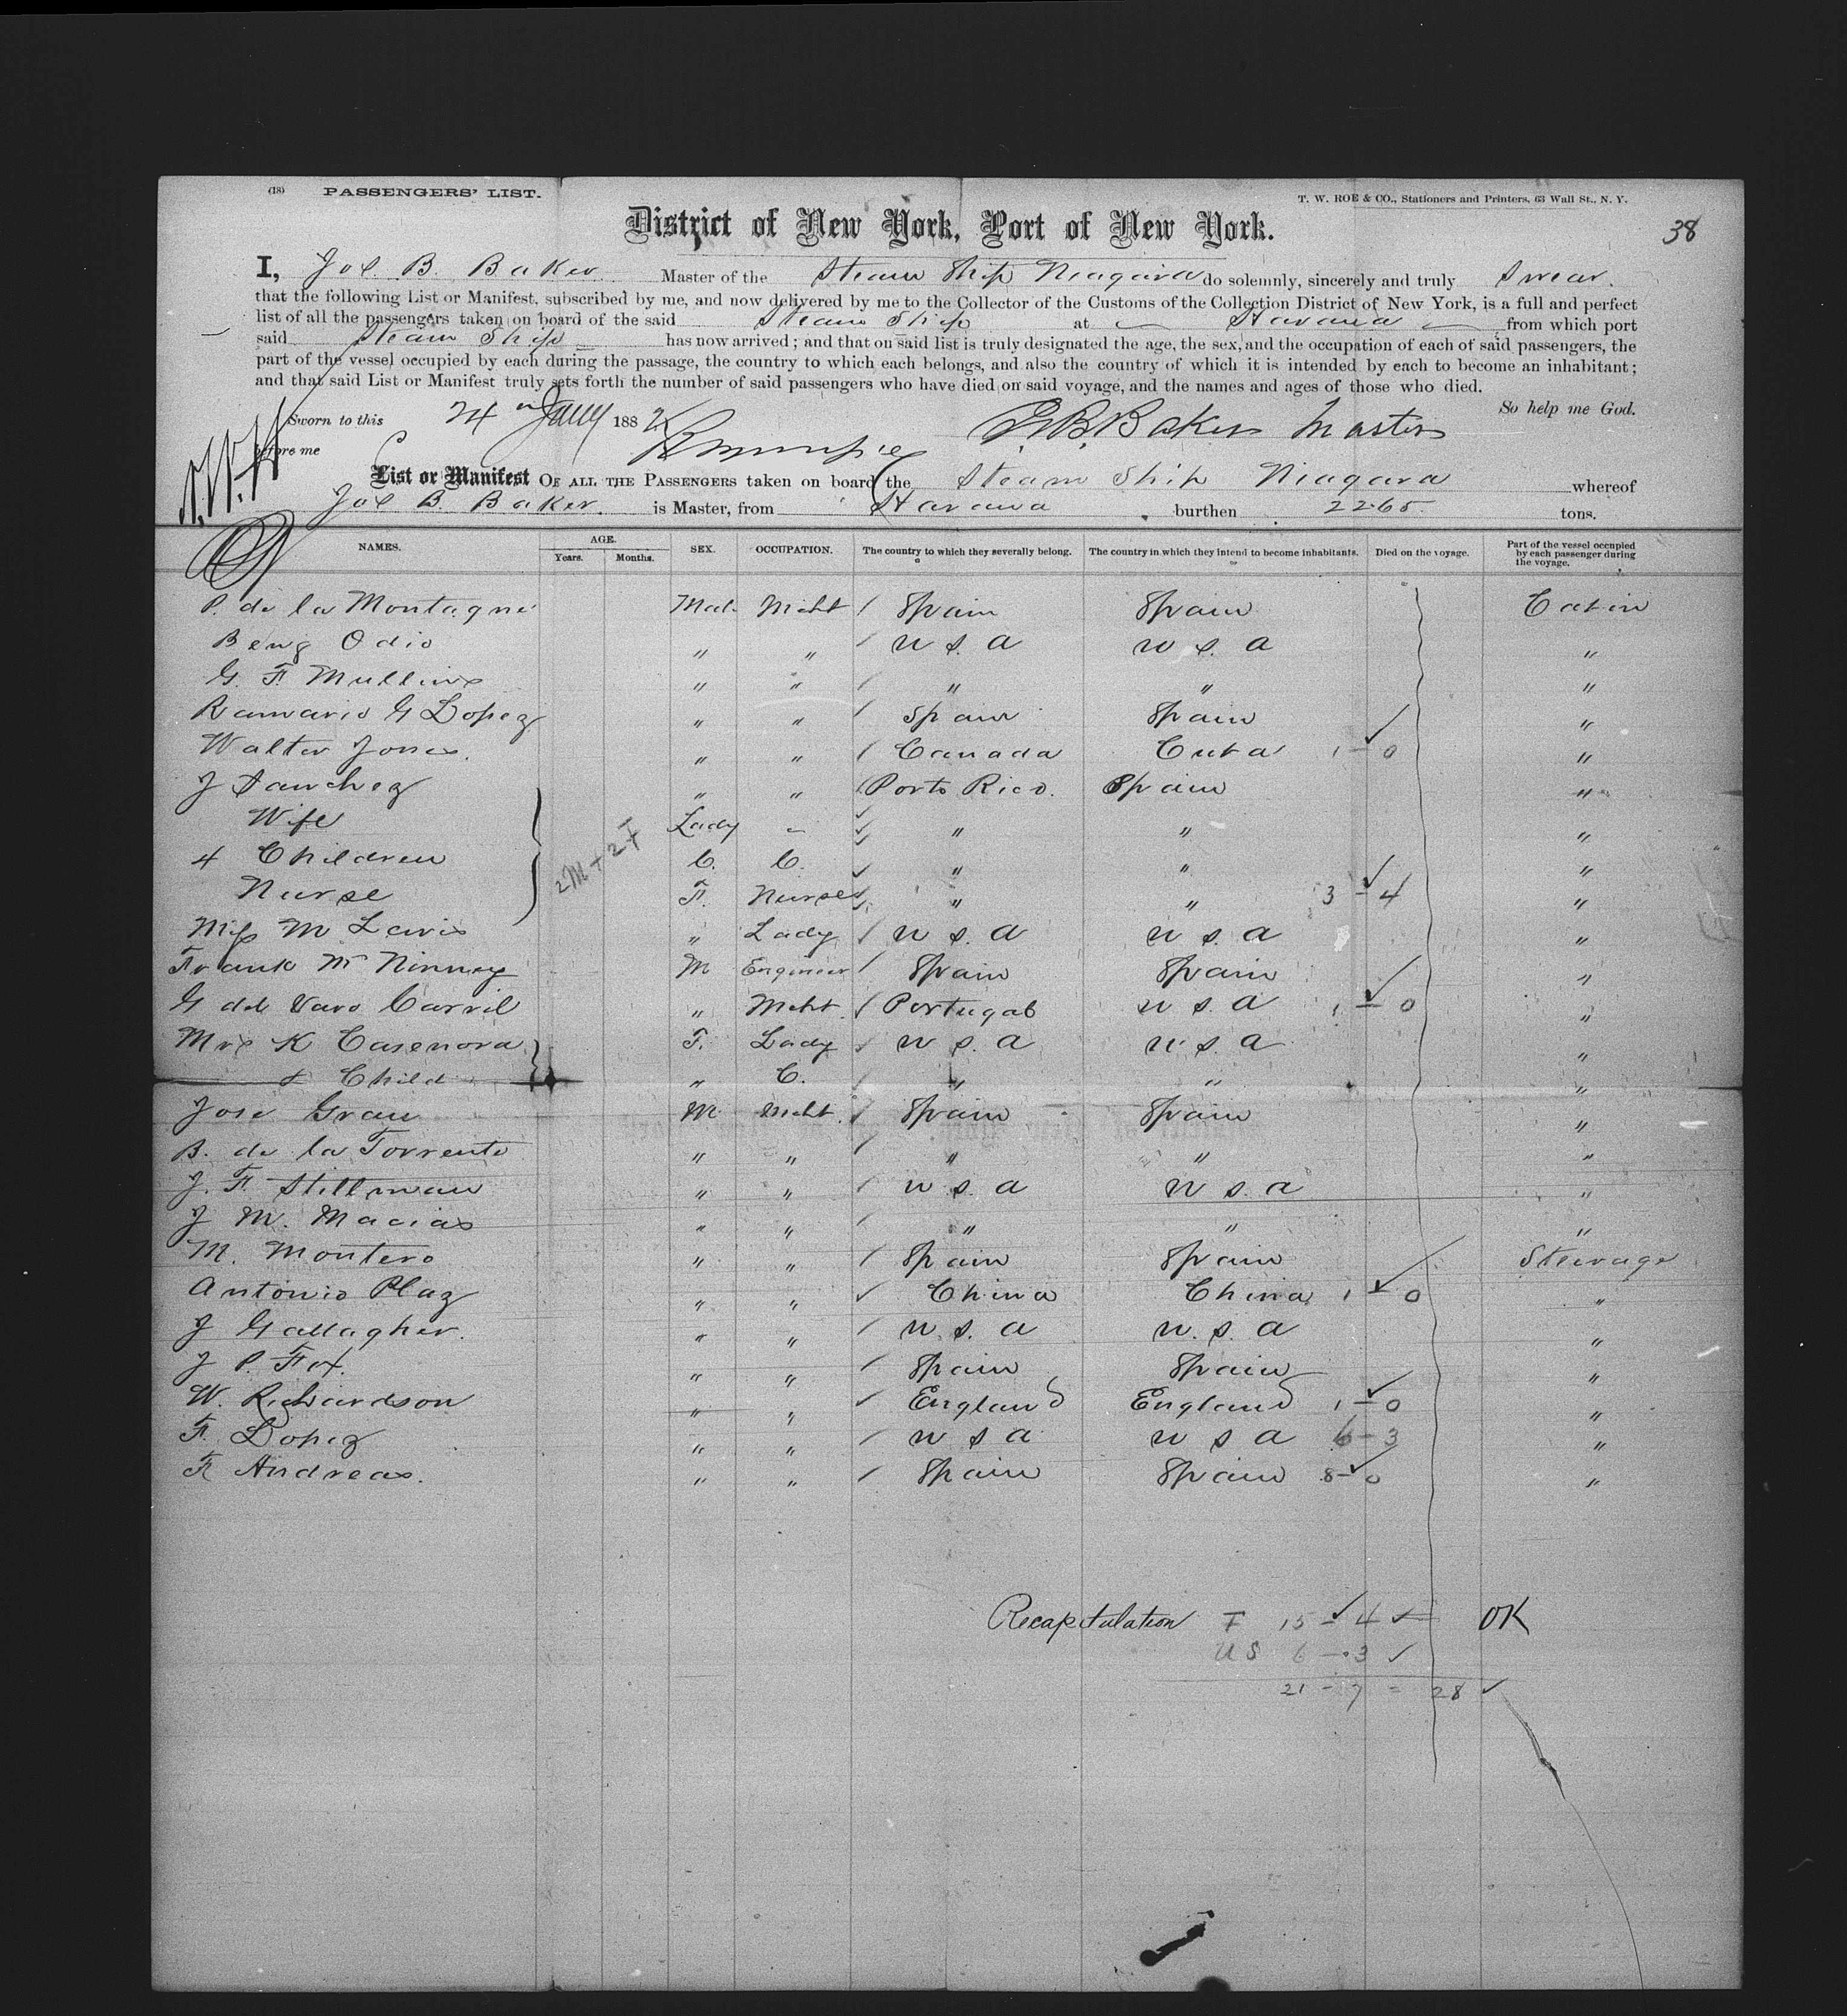 (18) PASSENGERS' LIST. T. W. ROE & CO., Stationers and Printers, 63 Wall St., N. Y.
District of New York, Port of New York. 38
I, Jos B. Baker Master of the Steam Ship Niagara do solemnly, sincerely and truly Swear.
that the following List or Manifest, subscribed by me, and now delivered by me to the Collector of the Customs of the Collection District of New York, is a full and perfect
list of all the passengers taken on board of the said Steam Ship at Havana from which port
said Steam Ship has now arrived; and that on said list is truly designated the age, the sex, and the occupation of each of said passengers, the
part of the vessel occupied by each during the passage, the country to which each belongs, and also the country of which it is intended by each to become an inhabitant;
and that said List or Manifest truly sets forth the number of said passengers who have died on said voyage, and the names and ages of those who died.
So help me God.
Sworn to this 24 Jany 1882 J. B. Baker Master
before me
List or Manifest OF ALL THE PASSENGERS taken on board the Steam Ship Niagara whereof
Jos B. Baker. is Master, from Havana burthen 2265 tons.
NAMES. AGE. Years. Months. SEX. OCCUPATION. The country to which they severally belong. The country in which they intend to become inhabitants. Died on the voyage. Part of the vessel occupied by each passenger during the voyage.
P. de la Montagne Male Mcht Spain Spain Cabin
Benj Odio " " U S. A U S. A "
G. F. Mullins " " " " "
Ramario G Lopez " " Spain Spain "
Walter Jones. " " Canada Cuba 1 - 0 "
J Sanchez " " Porto Rico. Spain "
Wife Lady " " " "
4 Children 2M + 2F C. C. " " "
Nurse F. Nurse " " 3 - 4 "
Miss M Lewis " Lady U S. A U S. A "
Frank Mc Ninney M Engineer Spain Spain "
G del Varo Carril " Mcht. Portugal U S. A 1 - 0 "
Mrs K Casenova F. Lady U S. A U. S. A "
& Child " C. " " "
Jose Grau M. Mcht. Spain Spain "
B. de la Torrente " " " " "
J. F. Stillman " " U S. A U S. A "
J M. Macias " " " " "
M. Montero " " Spain Spain Steerage
Antonio Plaz " " China China 1 - 0 "
J Gallagher. " " U. S. A U. S. A "
J P. Fox. " " Spain Spain "
W. Richardson " " England England 1 - 0 "
F. Lopez " " U S A U S A 6 - 3 "
F. Andreas. " " Spain Spain 8 - 0 "
Recapitulation F 15 - 4 OK
U S 6 - 3
21 - 7 = 28